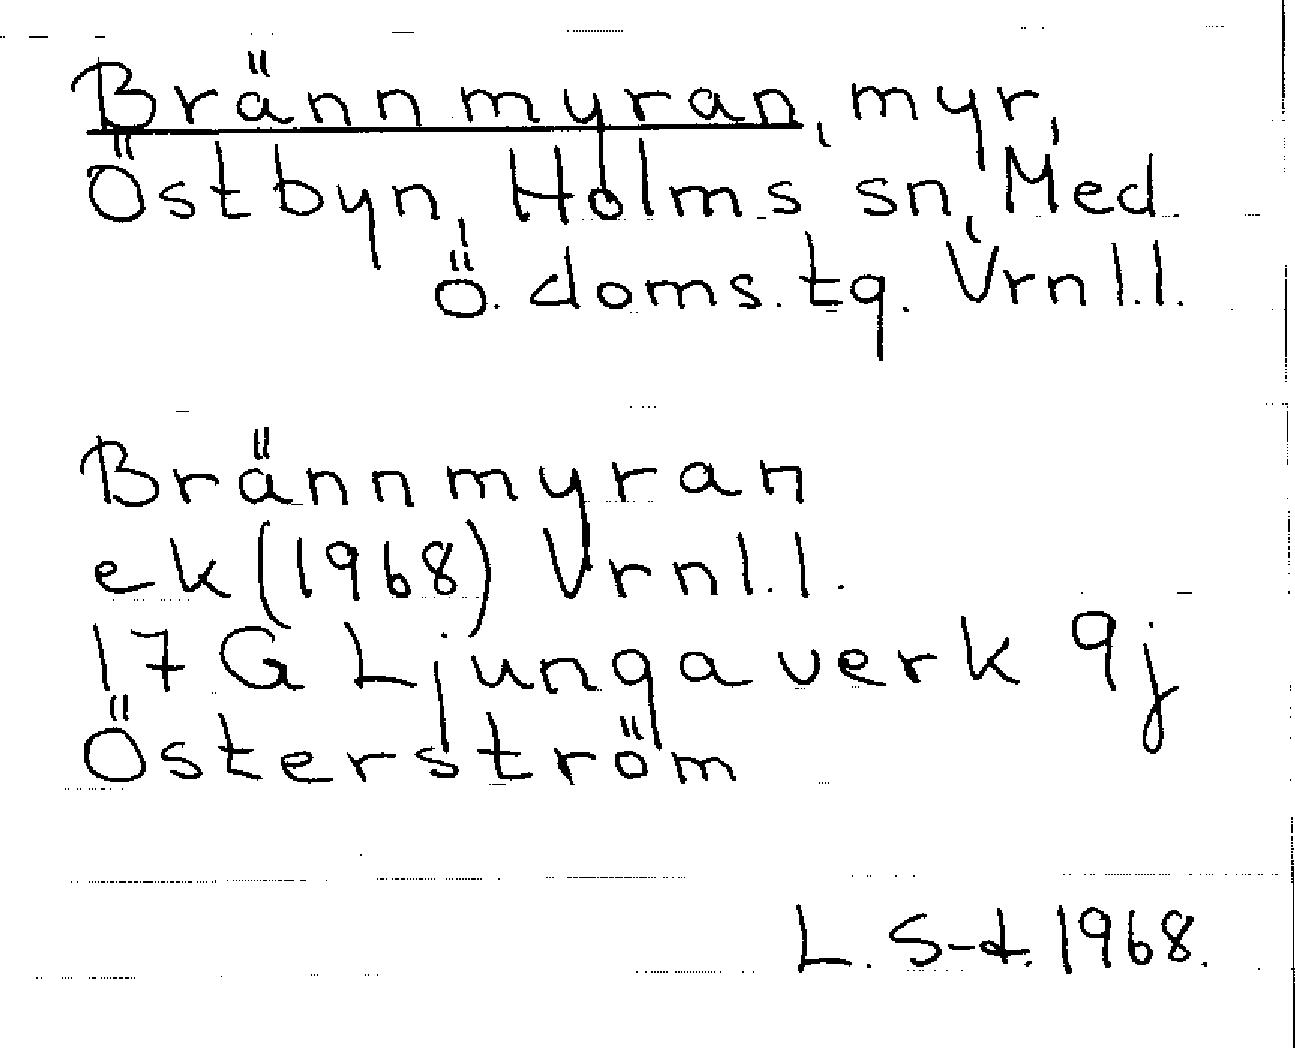 Brännmyran, myr,
Östbyn, Holms sn, Med.
Ö. doms. tg. Vrnl.l.
Brännmyran
ek (1968) Vrnl.l.
17 G Ljungaverk 9j
Österström
L. S-d. 1968.